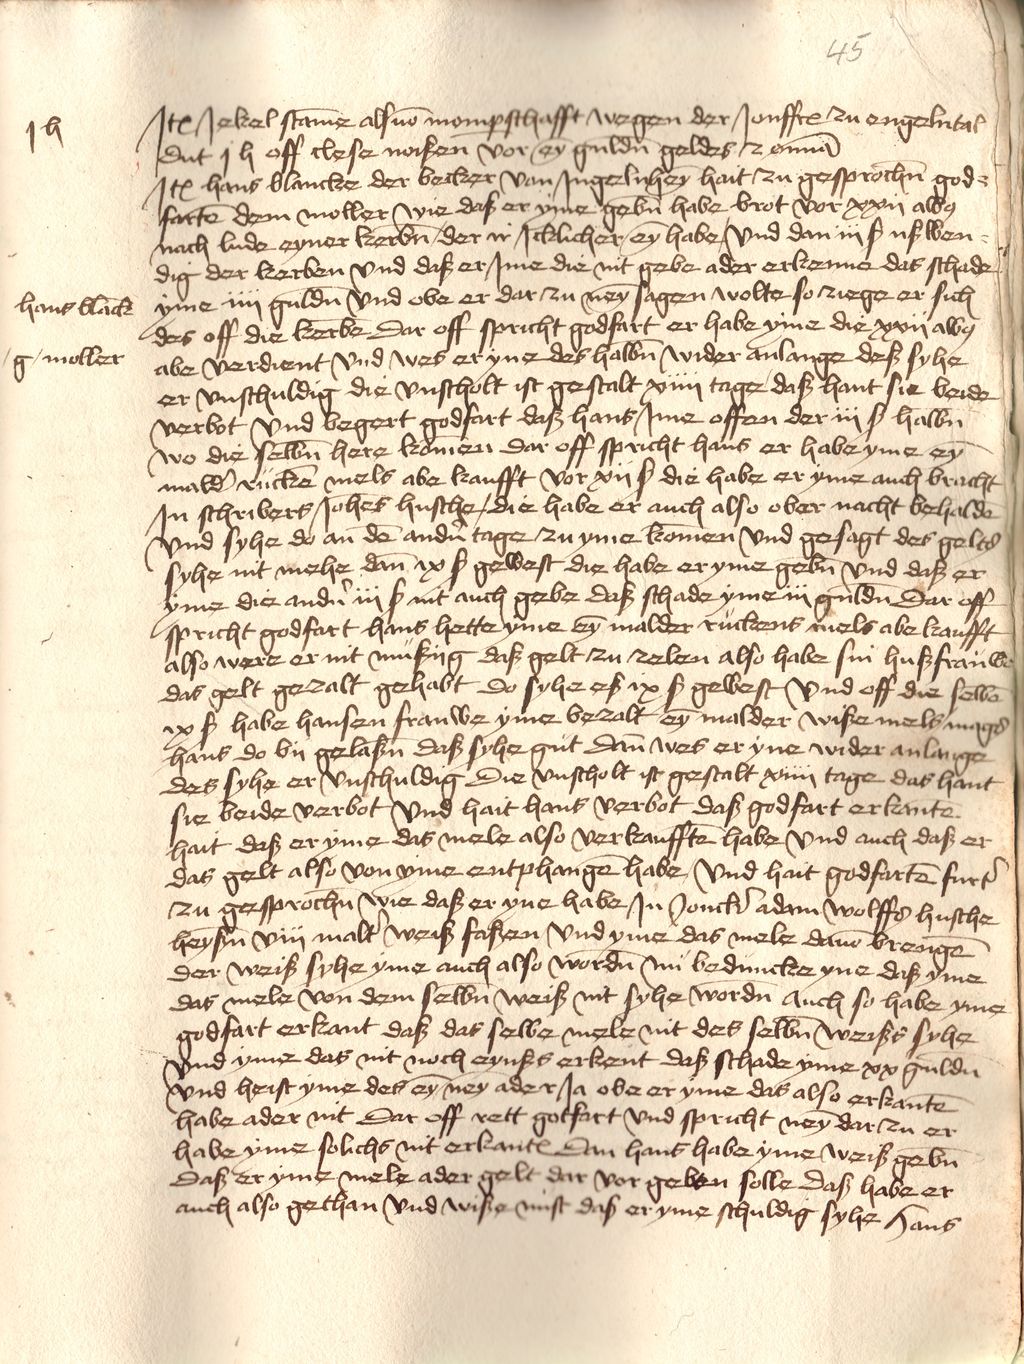 45
Jt(em) Jekel stam̄e alsuō mompschafft wegen der Jonffr(auwe) zu engelntal
dut j h off clese noißen vor ey guldn̄ geldes z om(n)ia
j h
Jt(em) hans blancke der becker van Jngelnhey hait zu gesprochn̄ god-
farte dem moller wie daß er yme gebn̄ habe brot vor xxii alb(us)
nach lude eyner kerbn̄ der ir Jcklicher ey habe Vnd dan iii ß vßwen-
dig der kerben vnd daß er Jme die nit gebe ader erkenne das schade
hans blāck
yme iiii guldn̄ Vnd obe er dar zu neȳ sagen wolte so ziege er sich
des off die kerbē Dar off spricht godfart er habe yme die xxii alb(us)
g moller
abe verdient Vnd wes er yne des halbn̄ wider anlange deß syhe
er vnschuldig die vnscholt ist gestalt xiiii tage daß hant sie beide
verbot Vnd begert godfart daß hans Jme offen der iii ß halbn̄
wo die selbn̄ here komēn Dar off spricht hans er habe yme ey
mald(er) ruckē mels abe kaufft vor xii ß die habe er yme auch bracht
Jn schribers Joh(ann)es husche die habe er auch also ober nacht behaldē
Vnd syhe do an dē andn̄ tage zu yme komēn Vnd gesagt des gelts
syhe nit mehe dan̄ ix ß gewest die habe er yme gebn̄ Vnd daß er
yme die andn̄ iii ß nit auch gebe daß schade yme iii guldn̄ Dar off
spricht godfart hans hette yme ey malder ruckens mels abe kaufft
also were er nit mußig daß gelt zu zelen also habe sin hußfrauwe
das gelt gezalt gehabt do syhe eß ix ß gewest Vnd off die selbē
ix ß habe hansen frauwe yme bezalt ey malder wiße mels mags
hans do by gelaßn̄ daß syhe gut Dan̄ wes er yne wider anlange
des syhe er vnschuldig Die vnscholt ist gestalt xiiii tage das hant
sie beide verbot Vnd hait hans verbot daß godfart erkantē
hait daß er yme das mele also verkaufftē habe Vnd auch daß er
das gelt also von yme entphangē habe Vnd hait godfartē furt(er)
zu gesprochn̄ wie daß er yne habe Jn Jonck(er) adam wolffs husche
heyßn̄ viii malt(er) weiß faßen Vnd yme das mele dauō brengē
der weiß syhe yme auch also wordn̄ nu beduncke yne daß yme
das mele von dem selbn̄ weiß nit syhe wordn̄ Auch so habe yme
godfart erkant daß das selbe mele nit des selbn̄ weißs syhe
Vnd yme das nit noch eynßs erkent daß schade yme xx guldn̄
Vnd heist yme des ey neȳ ader Ja obe er yme das also erkantē
habe ader nit Dar off rett gotfart Vnd spricht neȳ dar zu er
habe yme solichs nit erkant(en) Dan hans habe yme weiß gebn̄
Daß er yme mele ader gelt dar vor geben solle Daß habe er
auch also gethan Vnd wiße nust daß er yme schuldig syhe Hans